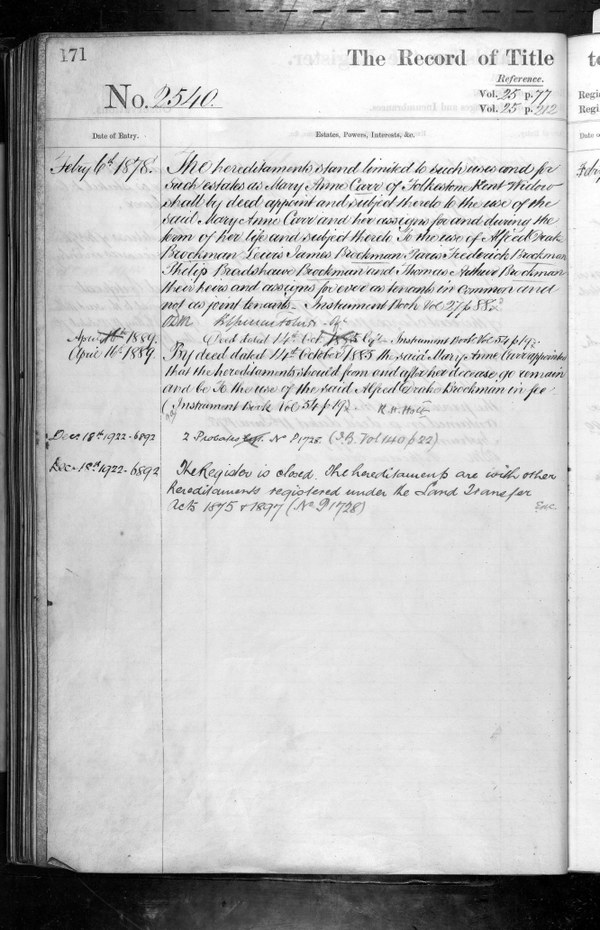 171
The Record of Title
Reference.
No. 2540.
Vol. 25 p. 77
Vol. 25 p. 212
Date of Entry.
Estates, Powers, Interests, &c.
Febry 6th 1878.
The hereditaments stand limited to such uses and for
such estates as Mary Anne Carr of Folkestone Kent Widow
shall by deed appoint and subject thereto to the use of the
said Mary Anne Carr and her assigns for and during the
term of her life and subject thereto To the use of Alfred Drake
Brockman Lewis James Brockman Frederick Brockman
Philip Bradshawe Brockman and Thomas Arthure Brockman
their heirs and assigns for ever as tenants in Common and
not as joint tenants – Instrument Book Vol 27 p 88
April 16th 1889.
Deed dated 14th Oct. 1885 Instrument Book Vol. 54 p 192
April 16th 1889
By deed dated 14th October 1885 the said Mary Anne Carr appointed
that the hereditaments should from and after her decease go remain
and be To the use of the said Alfred Drake Brockman in fee
(Instrument Book Vol 54 p 192 R. H. Holt
Dec 18th 1922 - 6892
2 Probates No P1728. (I.B. Vol 140 p 22)
Dec. 18th 1922 - 6892
The Register is closed. The hereditaments are with other
hereditaments registered under the Land Transfer
Acts 1875 & 1897 (No P1728)